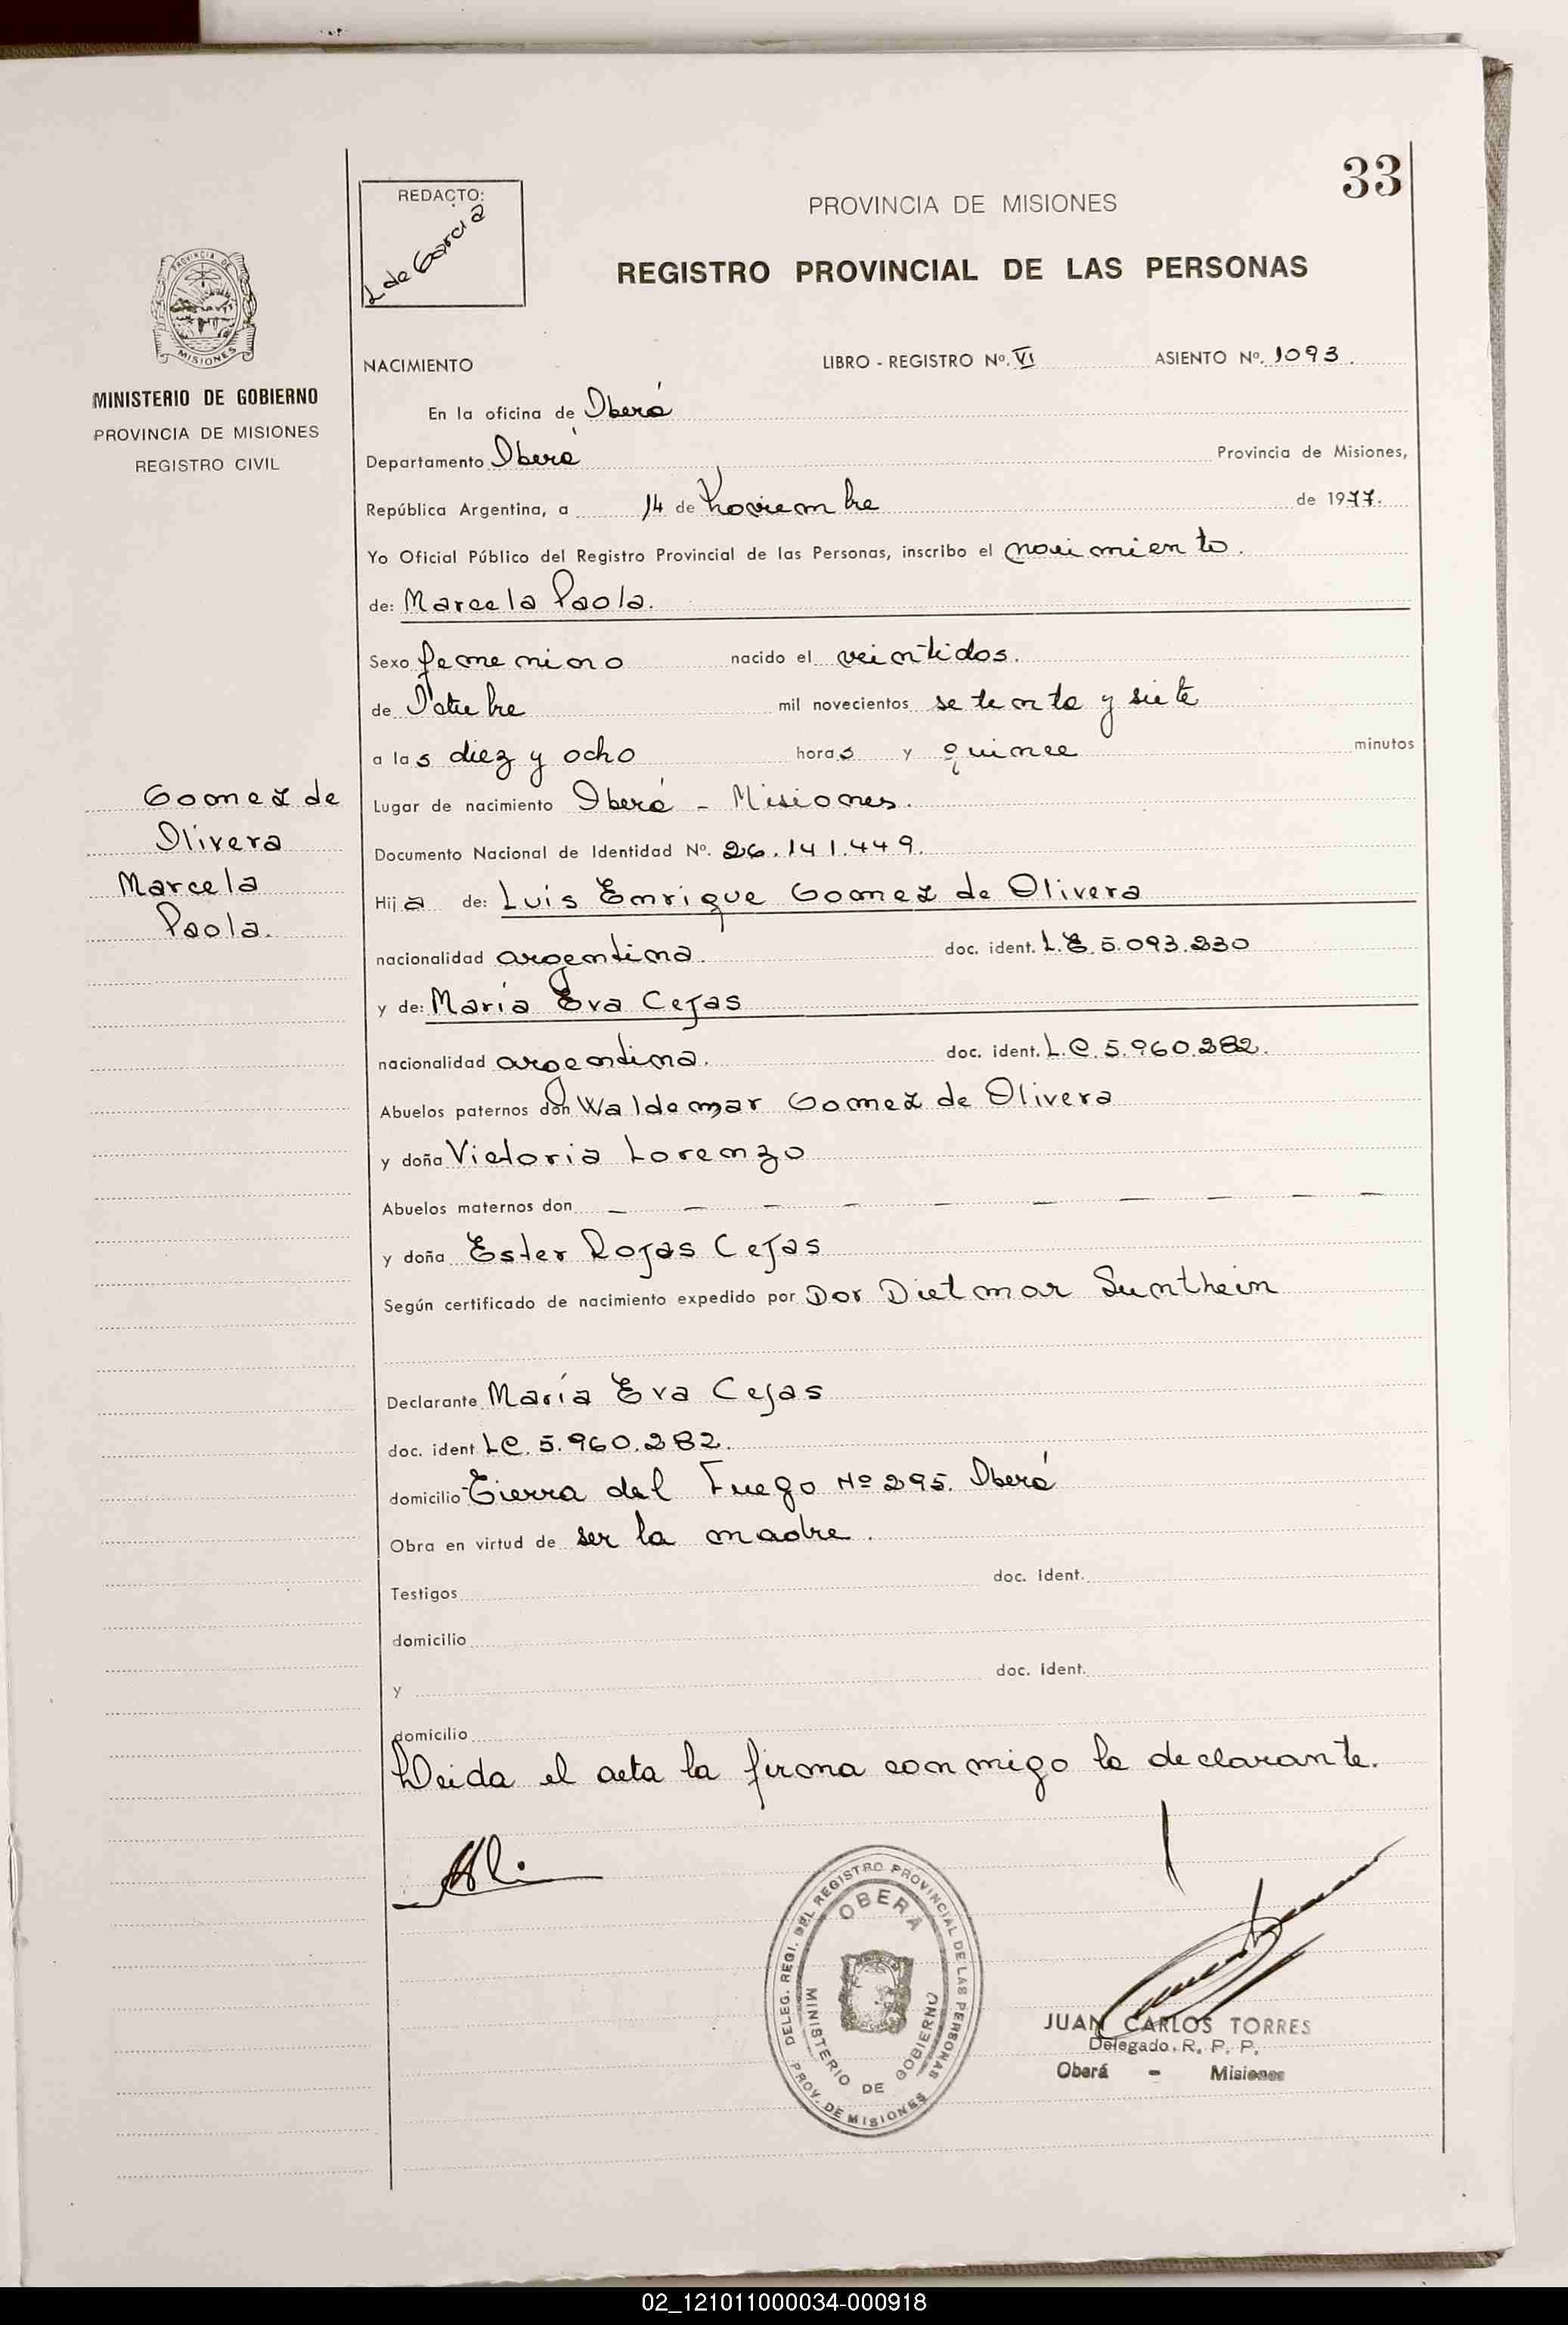 33
REDACTO:
L de Garcia
PROVINCIA DE MISIONES
REGISTRO PROVINCIAL DE LAS PERSONAS
PROVINCIA DE
MISIONES
MINISTERIO DE GOBIERNO
PROVINCIA DE MISIONES
REGISTRO CIVIL
NACIMIENTO LIBRO - REGISTRO Nº. VI ASIENTO Nº. 1093.
En la oficina de Oberá
Departamento Oberá Provincia de Misiones,
República Argentina, a 14 de Noviembre de 1977.
Yo Oficial Público del Registro Provincial de las Personas, inscribo el nacimiento.
de: Marcela Paola.
Sexo femenino nacido el veintidos.
de Octubre mil novecientos setenta y siete
a las diez y ocho horas y quince minutos
Lugar de nacimiento Oberá - Misiones.
Documento Nacional de Identidad Nº. 26.141.449.
Hija de: Luis Enrique Gomez de Olivera
nacionalidad argentina. doc. ident. L.E. 5.093.230
y de: María Eva Cejas
nacionalidad argentina. doc. ident. L.C. 5.960.282.
Abuelos paternos don Waldemar Gomez de Olivera
y doña Victoria Lorenzo
Abuelos maternos don — — — — — — — — — —
y doña Ester Rojas Cejas
Según certificado de nacimiento expedido por Dor Dietmar Sunthein
Declarante María Eva Cejas
doc. ident LC. 5.960.282.
domicilio Tierra del Fuego Nº 295. Oberá
Obra en virtud de ser la madre.
Testigos doc. ident.
domicilio
y doc. ident.
domicilio
Leida el acta la firma conmigo la declarante.
Gomez de
Olivera
Marcela
Paola.
DELEG. REGI. DEL REGISTRO PROVINCIAL DE LAS PERSONAS
OBERÁ
MINISTERIO DE GOBIERNO
PROV. DE MISIONES
JUAN CARLOS TORRES
Delegado. R. P. P.
Oberá - Misiones
02_121011000034-000918